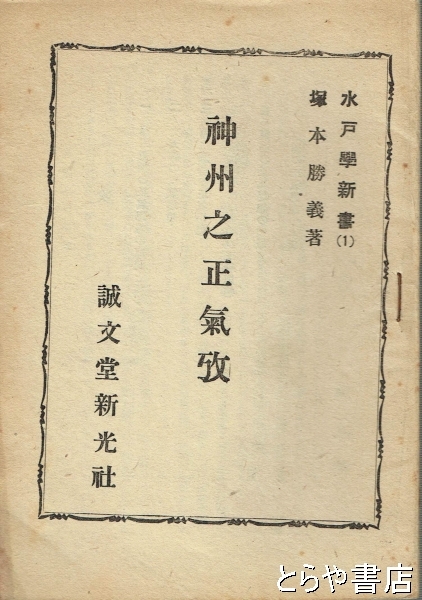 水戸學新書(1)
塚本勝義著
神州之正氣攷
誠文堂新光社
とらや書店